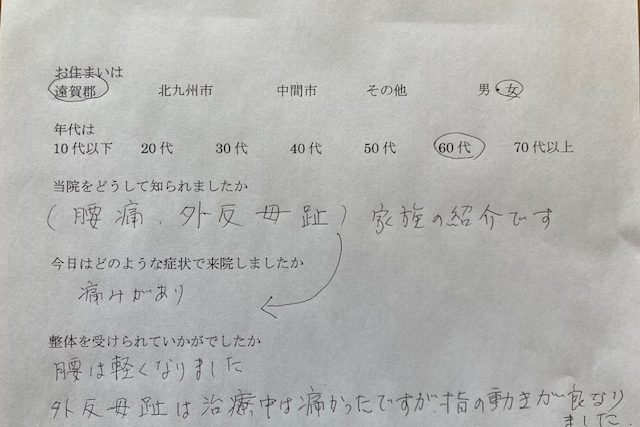 お住まいは
遠賀郡 北九州市 中間市 その他 男・女
年代は
10代以下 20代 30代 40代 50代 60代 70代以上
当院をどうして知られましたか
(腰痛、外反母趾) 家族の紹介です
今日はどのような症状で来院しましたか
痛みがあり
整体を受けられていかがでしたか
腰は軽くなりました
外反母趾は治療中は痛かったですが、指の動きが良くなり
ました。